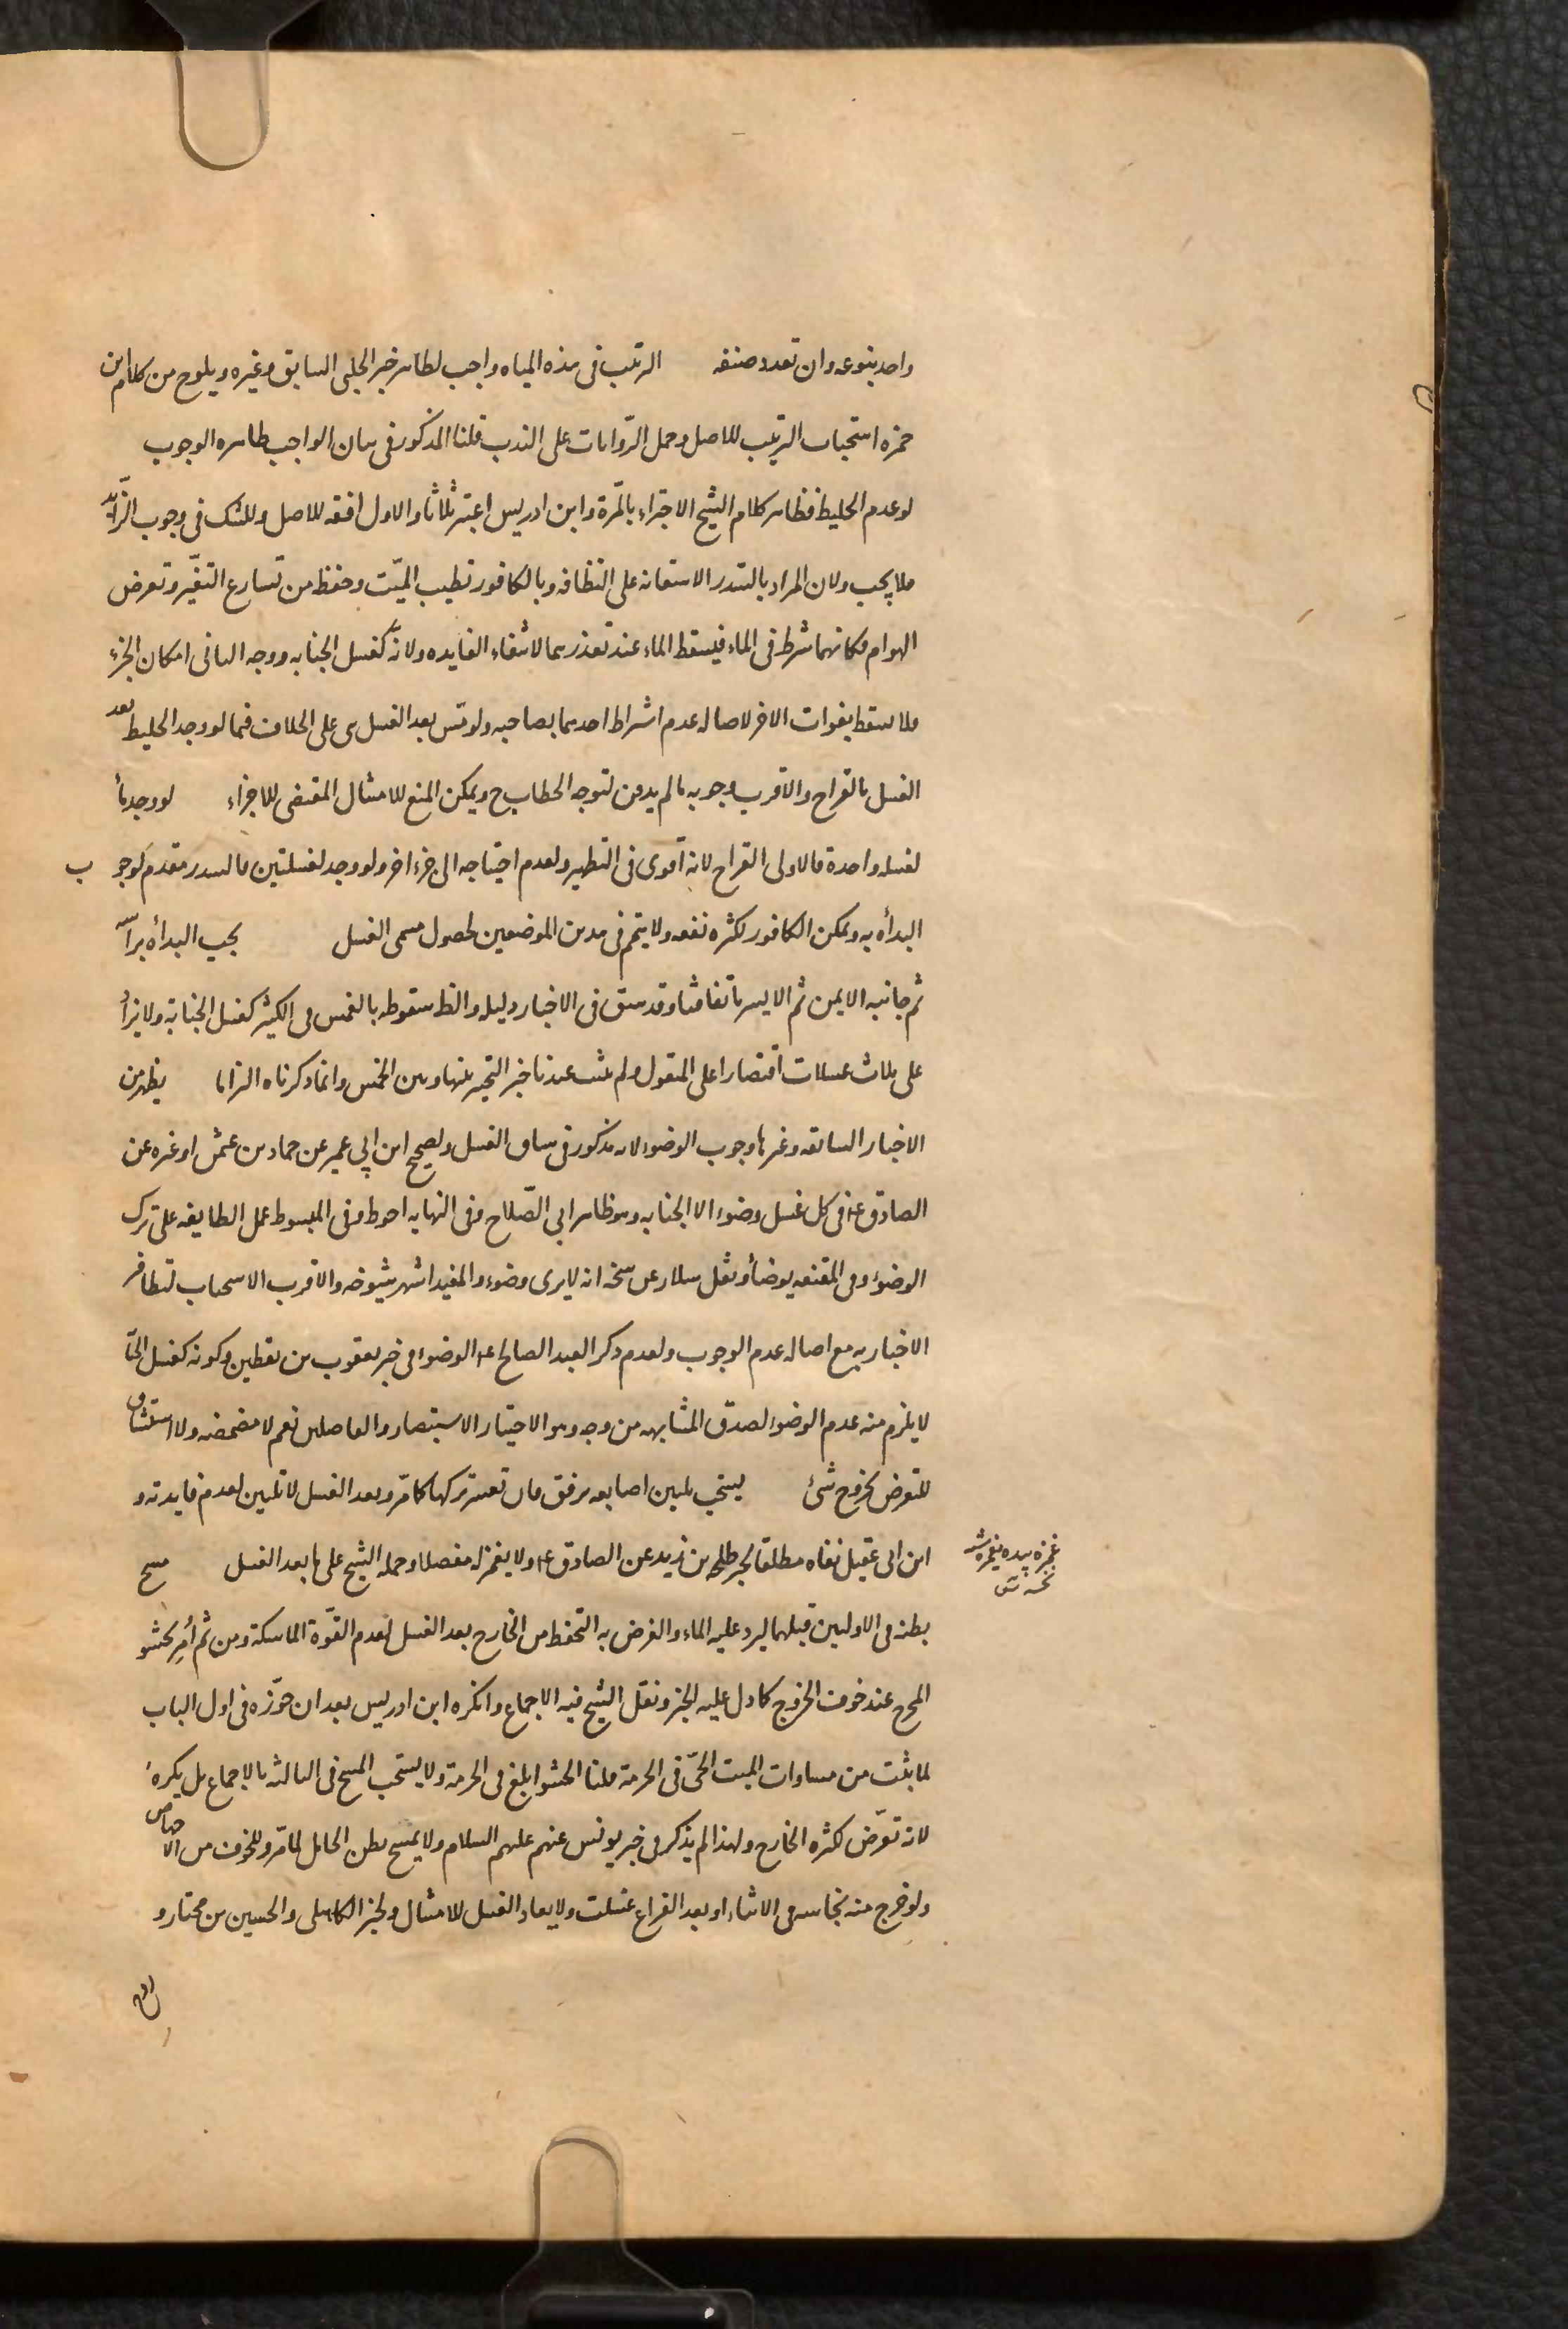 واحد بنوعه وان تعدد صنفه الترتيب فى هذه المياه واجب لظاهر خبر الحلبى السابق وغيره ويلوح من كلام ابن
حمزه استحباب الترتيب للاصل وحمل الرّوايات على الندب قلنا المذكور فى بيان الواجب ظاهره الوجوب
لو عدم الخليط فظاهر كلام الشيخ الاجتزاء بالمّرة وابن ادريس اعتبر ثلاثا والاول افقه للاصل وللشك فى وجوب الزّايد
فلا يجب ولان المراد بالسدر الاستعانه على النظافه وبالكافور تطييب الميّت وحفظه من تسارع التغيّر وتعرض
الهوام فكانهما شرط فى الماء فيسقط الماء عند تعذرهما لانتفاء الفايده ولانّه كغسل الجنابه ووجه الثانى امكان الجزء
فلا يسقط بفوات الاخر لاصاله عدم اشتراط احدهما بصاحبه ولو مسّ بعد الغسل بنى على الخلاف فيما لو وجد الخليط بعد
الغسل بالقراح والاقرب وجوبه ما لم يدفن لتوجه الخطاب ح ويمكن المنع للامتثال المقتضى للاجزاء لو وجد ماء
لغسله واحدة فالاولى القراح لانه اقوى فى التطهير ولعدم احتياجه الى جزء اخر ولو وجد لغسلتين فالسدر مقدم لوجوب
البدأه به ويمكن الكافور لكثره نفعه ولا يتمم فى هذين الموضعين لحصول مسمى الغسل يجب البدأه براسه
ثم جانبه الايمن ثم الايسر باتفاقنا وقد سبق فى الاخبار دليله والظ سقوطه بالغمس فى الكثير كغسل الجنابة ولا يزاد
على ثلاث غسلات اقتصارا على المنقول ولم يثبت عندنا خبر التخيير بينها وبين الخمس وانما ذكرناه الزاما يظهر من
الاخبار السابقه وغيرها وجوب الوضوء لانه مذكور فى سياق الغسل ولصحيح ابن ابى عمير عن حماد بن عثمن او غيره عن
الصادق ع فى كل غسل وضوء الا الجنابه وهو ظاهر ابى الصّلاح وفى النهايه احوط وفى المبسوط عمل الطايفه على ترك
الوضوء وفى المقنعه يوضأ ونقل سلار عن شيخه انه لا يرى وضوء والمفيد اشهر شيوخه والاقرب الاستحباب لتظافر
الاخبار به مع اصاله عدم الوجوب ولعدم ذكر العبد الصالح ع الوضوء فى خبر يعقوب بن يقطين وكونه كغسل الجنابة
لا يلزم منه عدم الوضوء لصدق المشابهه من وجه وهو الاختيار الاستبصار والفاضلان نعم لا مضمضه ولا استنشاق
للتعرض لخروج شئ يستحب تليين اصابعه برفق فان تعسّر تركها كما مرّ وبعد الغسل لا تليين لعدم فايدته و
ابن ابى عقيل نفاه مطلقا لخبر طلحه بن زيد عن الصادق ع ولا يغمز له مفصلا وحمله الشيخ على ما بعد الغسل مسح
غمزه بيده يغمزه
نخسه
بطنه فى الاوليين قبلهما ليرد عليه الماء والغرض به التحفظ من الخارج بعد الغسل لعدم القوّة الماسكة ومن ثم اُمِر بحشو
المخرج عند خوف الخروج كما دل عليه الخبر ونقل الشيخ فيه الاجماع وانكره ابن ادريس بعد ان جوّزه فى اول الباب
لما ثبت من مساوات الميت الحىّ فى الحرمة قلنا الحشو ابلغ فى الحرمة ولا يستحب المسح فى الثالثه بالاجماع بل يكره
لانه تعرّض لكثره الخارج ولهذا لم يذكر فى خبر يونس عنهم عليهم السلام ولا يمسح بطن الحامل لما مرّ وللخوف من الاجهاض
ولو خرج منه نجاسه فى الاثناء او بعد الفراغ غسلت ولا يعاد الغسل للامتثال ولخبر الكاهلى والحسين بن مختار و